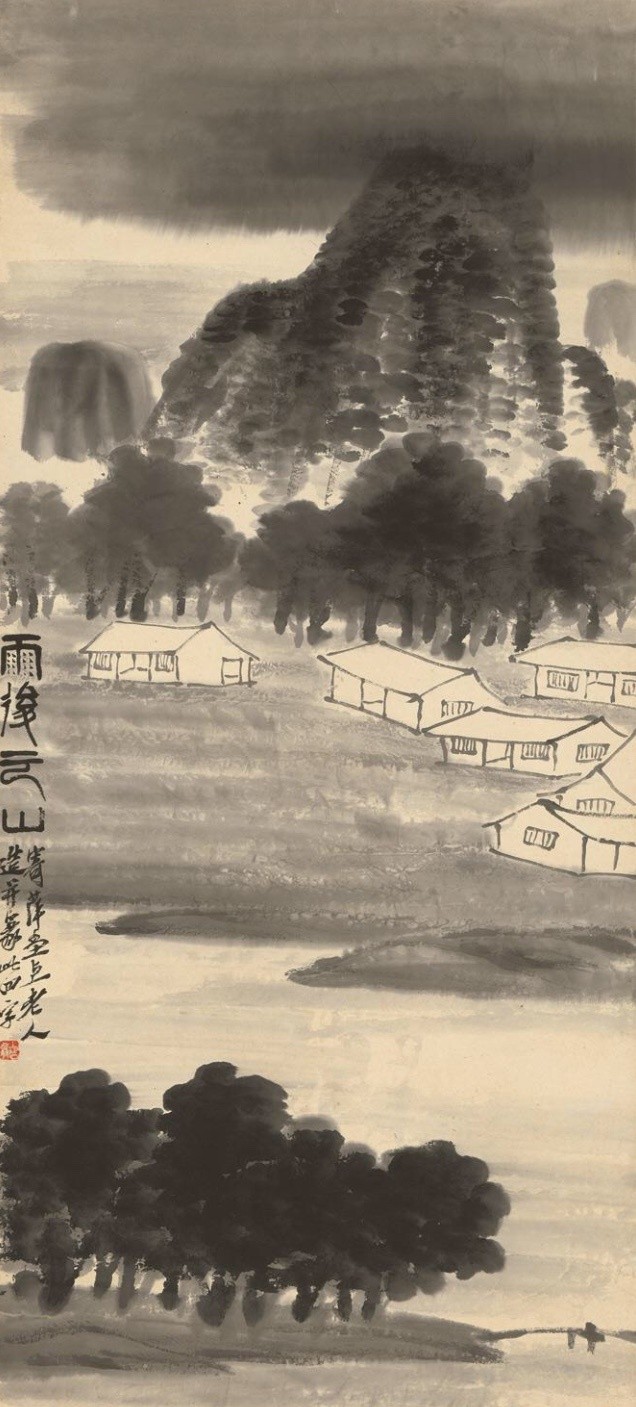 雨後云山
寄萍堂上老人
造并篆此四字